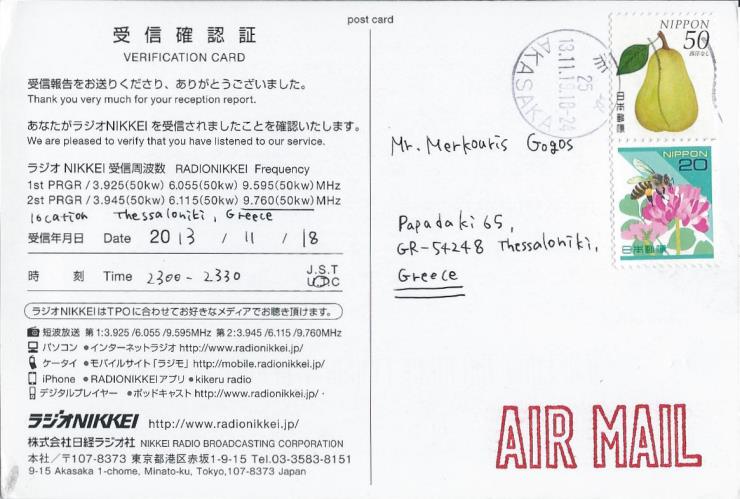 post card
受信確認証
VERIFICATION CARD
受信報告をお送りくださり、ありがとうございました。
Thank you very much for your reception report.
あなたがラジオNIKKEIを受信されましたことを確認いたします。
We are pleased to verify that you have listened to our service.
ラジオ NIKKEI 受信周波数 RADIONIKKEI Frequency
1st PRGR / 3.925(50kw) 6.055(50kw) 9.595(50kw) MHz
2st PRGR / 3.945(50kw) 6.115(50kw) 9.760(50kw) MHz
location Thessaloniki, Greece
受信年月日 Date 2013 / 11 / 18
時 刻 Time 2300 - 2330 J.S.T
UTC
ラジオNIKKEIはTPOに合わせてお好きなメディアでお聴き頂けます。
短波放送 第1:3.925 /6.055 /9.595MHz 第2:3.945 /6.115 /9.760MHz
パソコン ●インターネットラジオ http://www.radionikkei.jp/
ケータイ ●モバイルサイト「ラジモ」 http://mobile.radionikkei.jp/
iPhone ●RADIONIKKEIアプリ ●kikeru radio
デジタルプレイヤー ●ポッドキャスト http://www.radionikkei.jp/
ラジオNIKKEI http://www.radionikkei.jp/
株式会社日経ラジオ社 NIKKEI RADIO BROADCASTING CORPORATION
本社/〒107-8373 東京都港区赤坂1-9-15 Tel.03-3583-8151
9-15 Akasaka 1-chome, Minato-ku, Tokyo,107-8373 Japan
NIPPON
50
西洋なし
日本郵便
NIPPON
20
日本郵便
25
AKASAKA
Mr. Merkouris Gogos
Papadaki 65,
GR-54248 Thessaloniki,
Greece
AIR MAIL